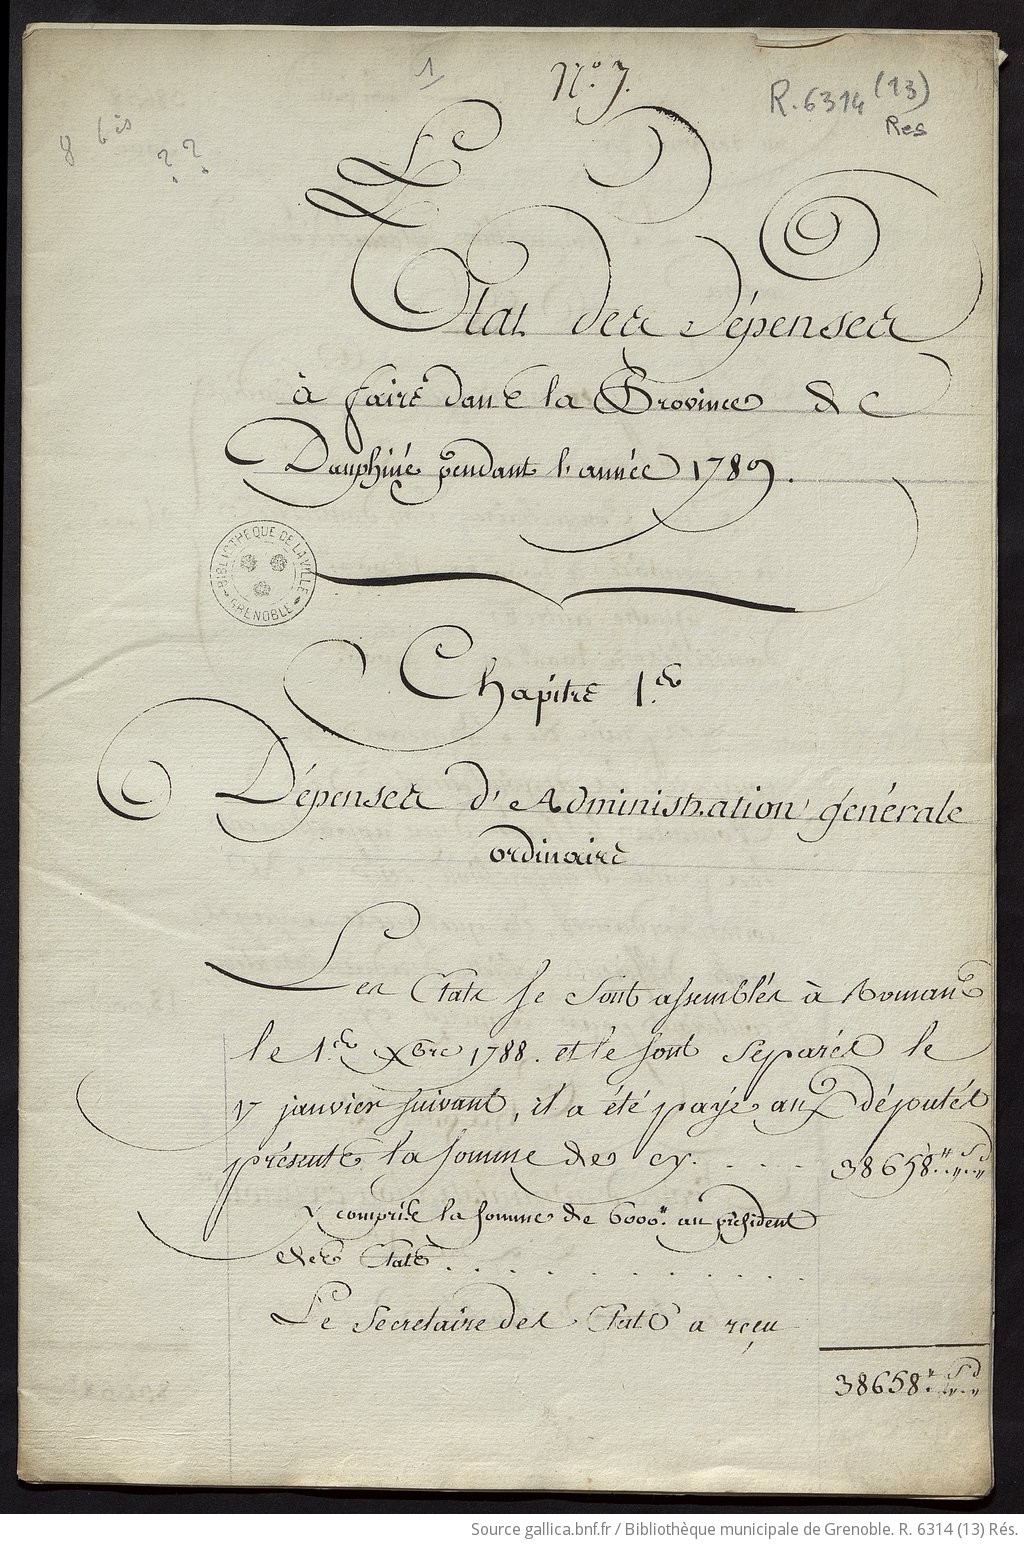 1
N.° 7.
R. 6314 (13)
Res
8 bis
? ?
Etat des Dépenses
à faire dans la Province de
Dauphiné pendant l'année 1789.
BIBLIOTHEQUE DE LA VILLE
GRENOBLE
Chapitre 1.er
Dépenses d'Administration générale
ordinaire
Les Etats se sont assemblés à Romans
le 1.er Xbre 1788. et se sont séparés le
17 janvier suivant, il a été payé aux députés
présents la somme de cy. . . . .
38658.# „s „d
y compris la somme de 6000.# au président
des Etats . . . . . . . . . . .
Le Secretaire des Etats a reçu
38658.# „s „d
Source gallica.bnf.fr / Bibliothèque municipale de Grenoble. R. 6314 (13) Rés.